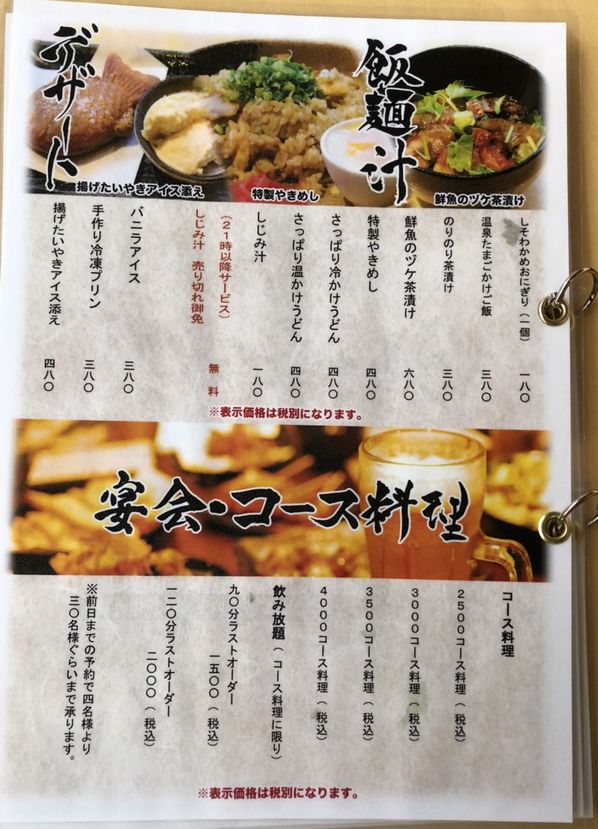 飯麺汁
デザート
揚げたいやきアイス添え
特製やきめし
鮮魚のヅケ茶漬け
しそわかめおにぎり（一個） 一八〇
温泉たまごかけご飯 三八〇
のりのり茶漬け 三八〇
鮮魚のヅケ茶漬け 六八〇
特製やきめし 四八〇
さっぱり冷かけうどん 四八〇
さっぱり温かけうどん 四八〇
しじみ汁 一八〇
（２１時以降サービス） 無料
しじみ汁 売り切れ御免
バニラアイス 三八〇
手作り冷凍プリン 三八〇
揚げたいやきアイス添え 四八〇
※表示価格は税別になります。
宴会・コース料理
コース料理
２５００コース料理（税込）
３０００コース料理（税込）
３５００コース料理（税込）
４０００コース料理（税込）
飲み放題（コース料理に限り）
九〇分ラストオーダー
一五〇〇（税込）
一二〇分ラストオーダー
二〇〇〇（税込）
※前日までの予約で四名様より
三〇名様ぐらいまで承ります。
※表示価格は税別になります。